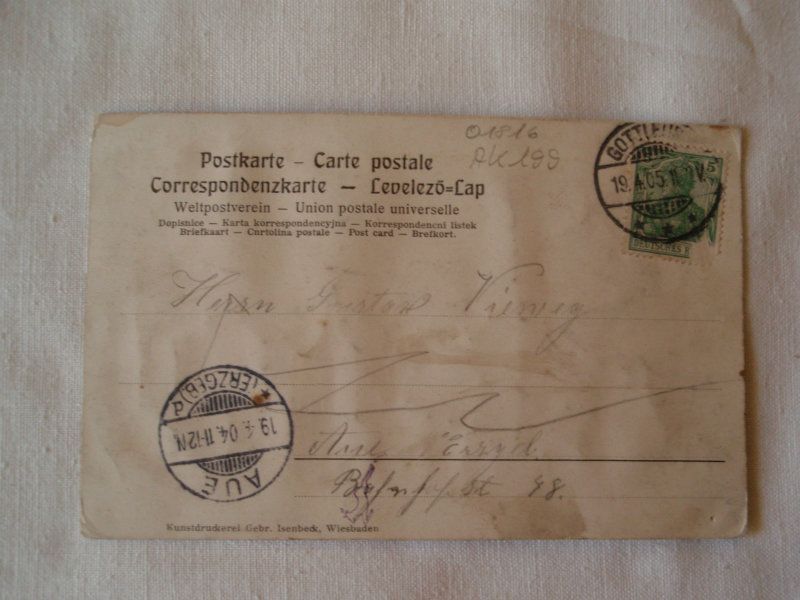 01816
AK199
Postkarte – Carte postale
Correspondenzkarte – Levelező=Lap
Weltpostverein – Union postale universelle
Dopisnice – Karta korrespondencyjna – Korrespondencni listek
Briefkaart – Cnrtolina postale – Post card – Brefkort.
19.4.05.11
5
DEUTSCHES R
Herrn Gustav Vieweg
Aue Erzgb.
Bahnhofst 48.
(ERZGEB)
19.4.04.11-12N.
AUE
Kunstdruckerei Gebr. Isenbeck, Wiesbaden